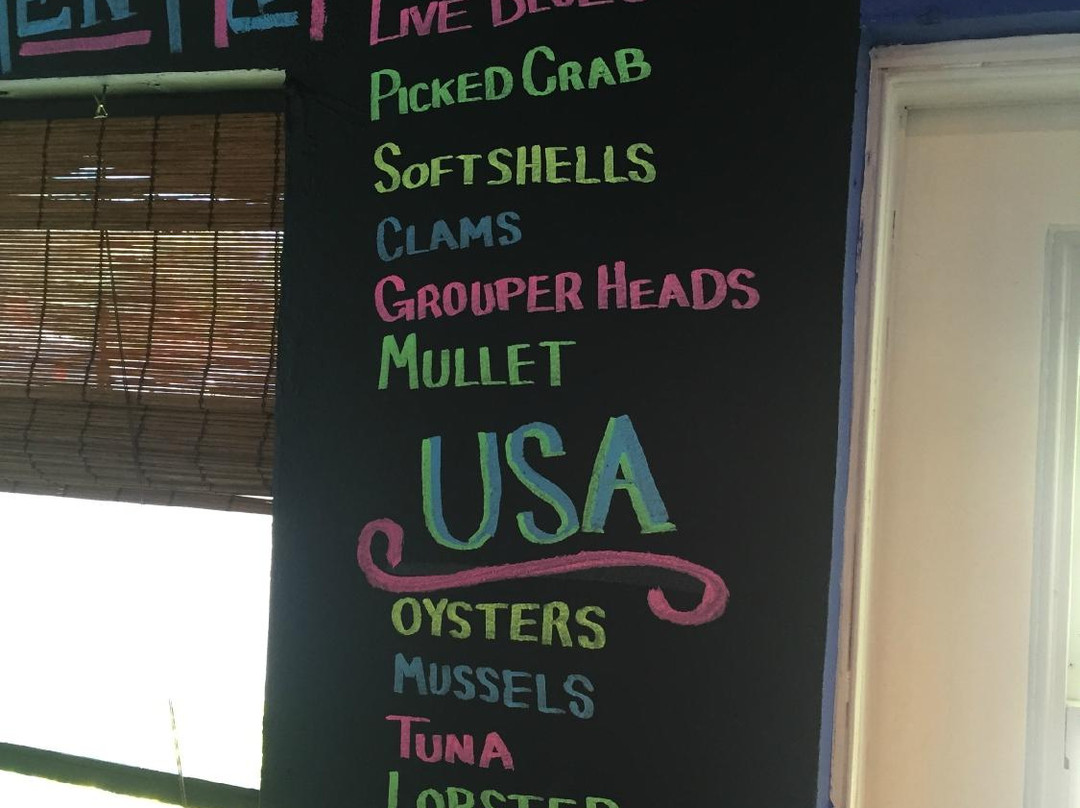 LIVE
PICKED CRAB
SOFTSHELLS
CLAMS
GROUPER HEADS
MULLET
USA
OYSTERS
MUSSELS
TUNA
LOBSTER